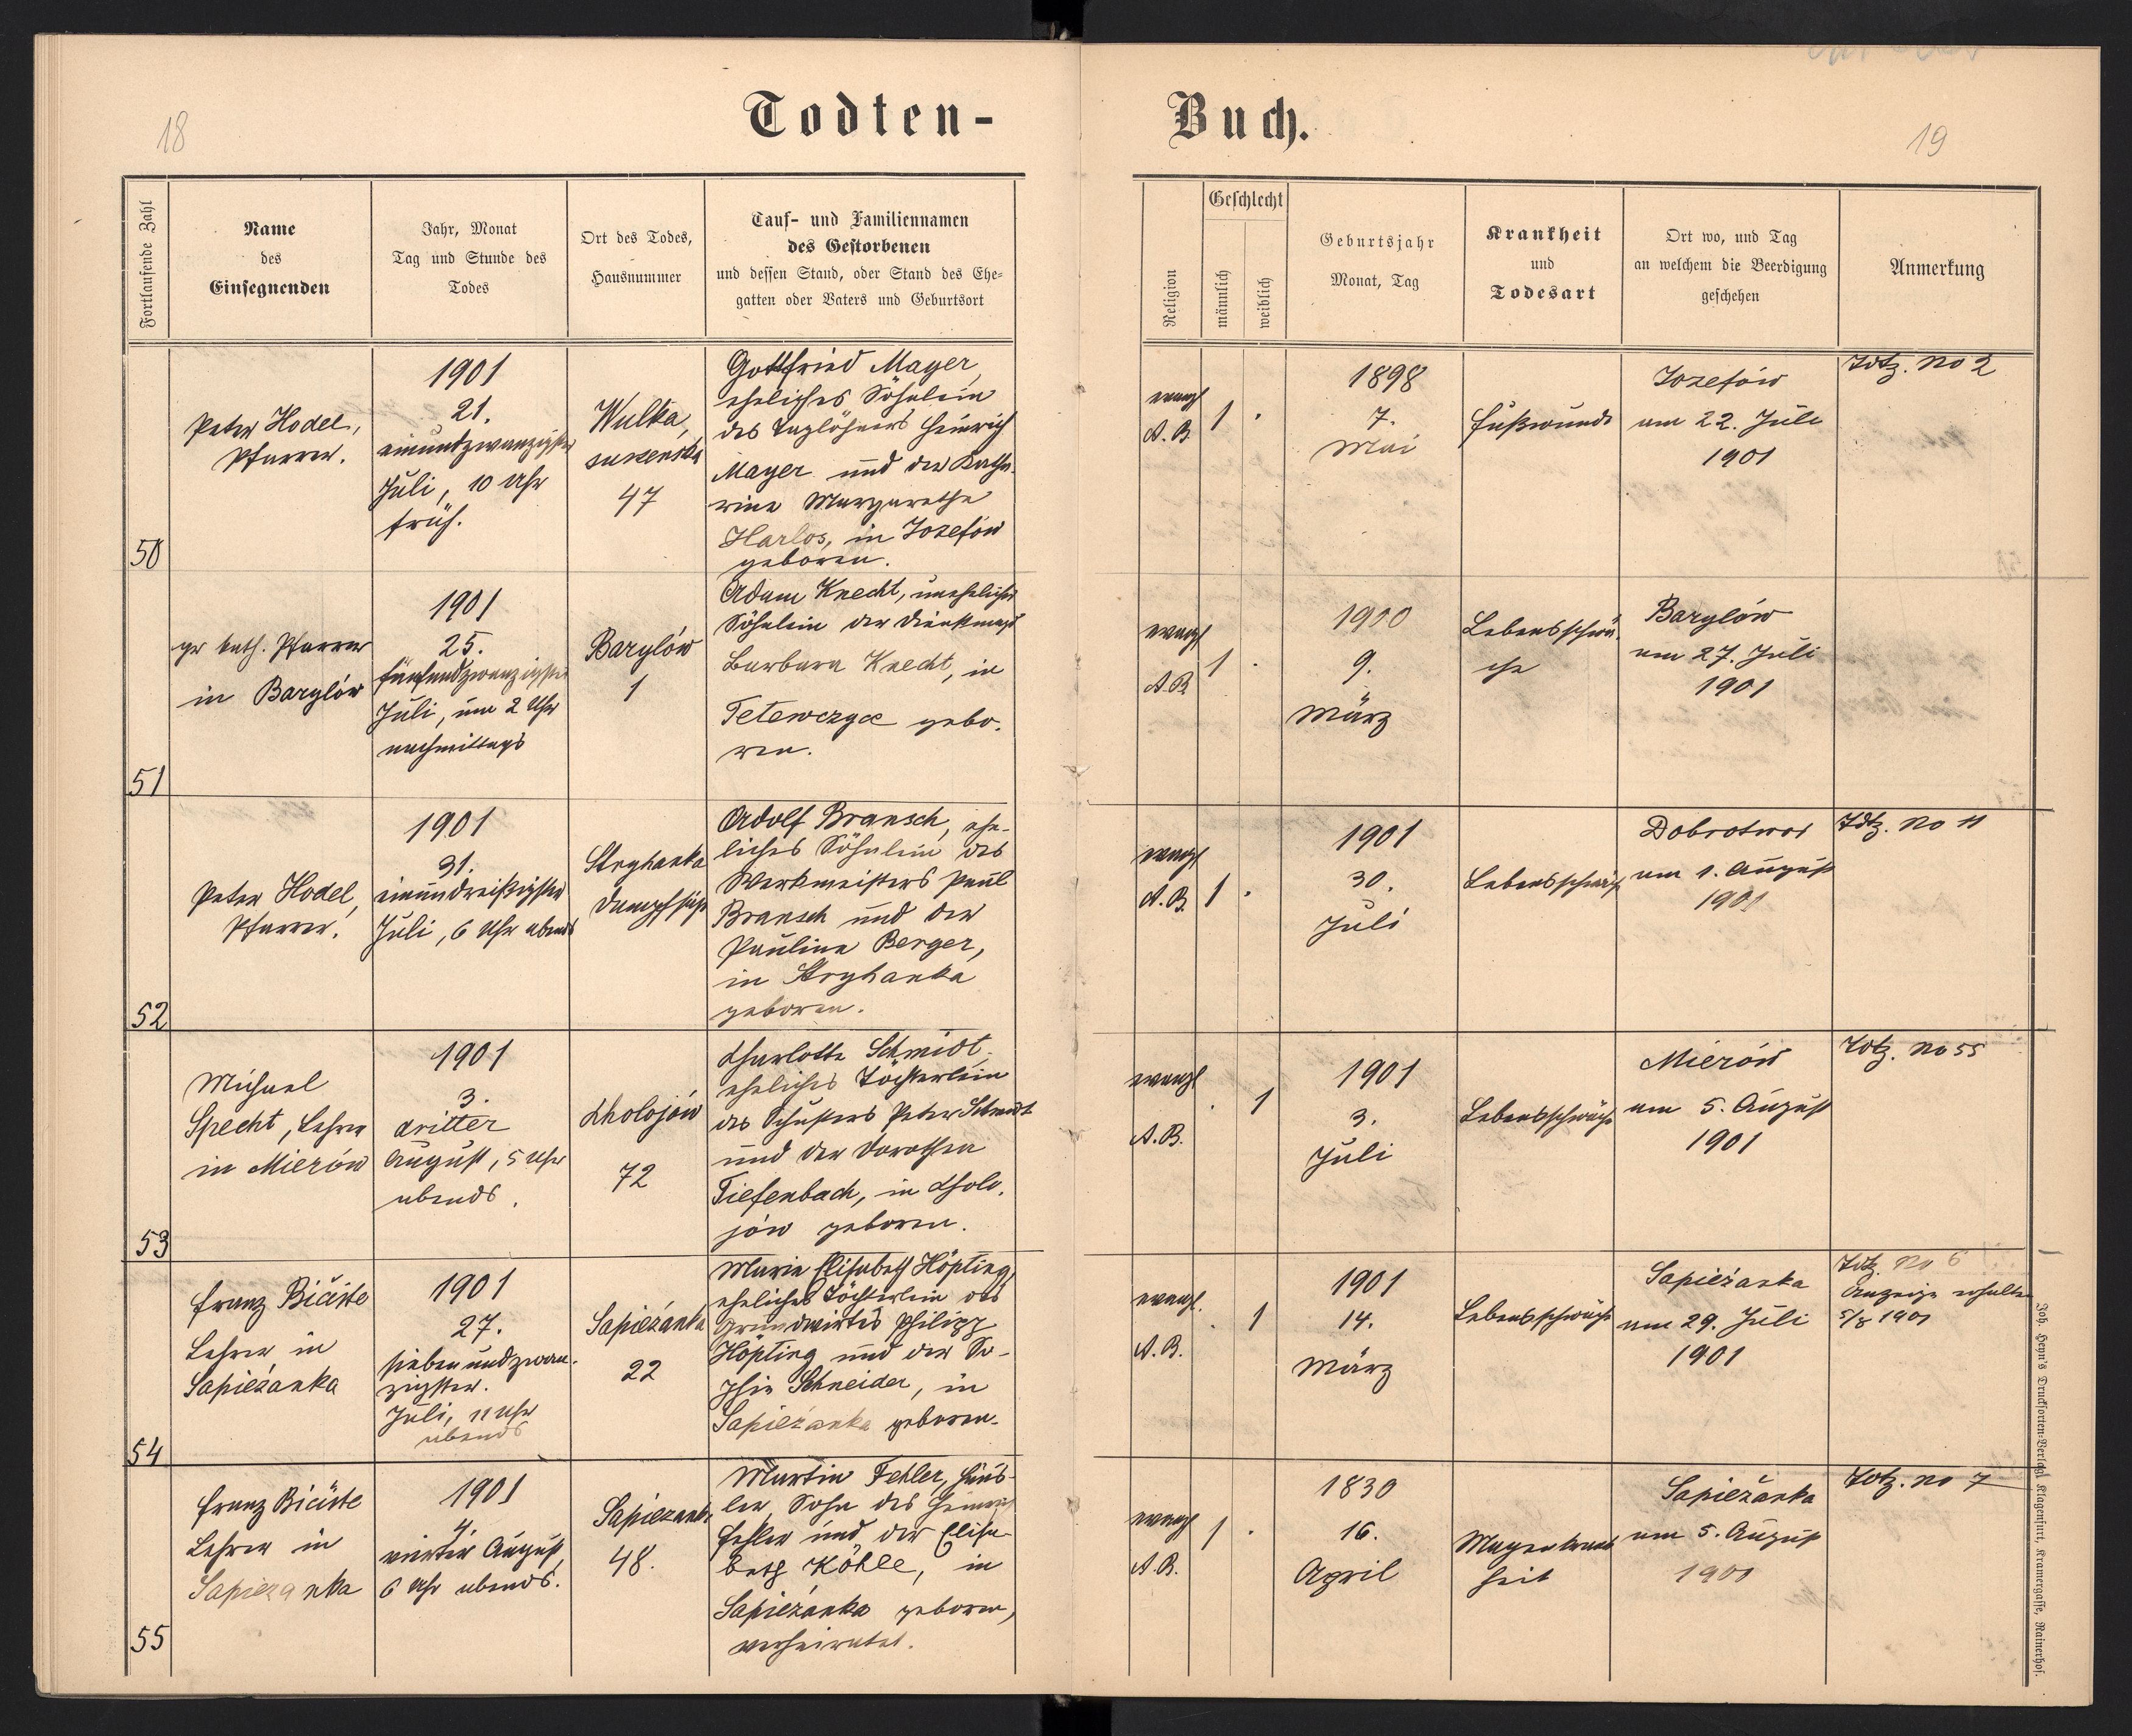 18
Todten-
Buch.
19
Fortlaufende Zahl
Name
des
Einsegnenden
Jahr, Monat
Tag und Stunde des
Todes
Ort des Todes,
Hausnummer
Tauf- und Familiennamen
des Gestorbenen
und dessen Stand, oder Stand des Ehe-
gatten oder Vaters und Geburtsort
Religion
Geschlecht
männlich
weiblich
Geburtsjahr
Monat, Tag
Krankheit
und
Todesart
Ort wo, und Tag
an welchem die Beerdigung
geschehen
Anmerkung
50
Peter Hodel,
Pfarrer.
1901
21.
einundzwanzigster
Juli, 10 Uhr
früh.
Wulka,
suszenska
47
Gottfried Mayer,
eheliches Söhnlein
des Taglöhners Heinrich
Mayer und der Katha-
rina Margaretha
Harlos, in Jozefów
geboren.
evangl
A. B.
1 .
1898
7.
Mai
Fußwunde
Jozefów
am 22. Juli
1901
Tdtz. No 2
51
gr kath. Pfarrer
in Barylów
1901
25.
fünfundzwanzigster
Juli, um 2 Uhr
nachmittags
Barylów
1
Adam Knecht, uneheliches
Söhnlein der Dienstmagd
Barbara Knecht, in
Tetewczyce gebo-
ren.
evangl
A. B.
1 .
1900
9.
März
Lebensschwä-
che
Barylów
am 27. Juli
1901
52
Peter Hodel,
Pfarrer.
1901
31.
einunddreißigster
Juli, 6 Uhr abends
Stryhanka
Dampfsäge
Adolf Bransch, ehe-
liches Söhnlein des
Werkmeisters Paul
Bransch und der
Paulina Berger,
in Stryhanka
geboren.
evangl
A. B.
1 .
1901
30.
Juli
Lebensschwäche
Dobrotwor
am 1. August
1901
Tdtz. No 11
53
Michael
Specht, Lehrer
in Mierów
1901
3.
dritter
August, 5 Uhr
abends.
Cholojów
72
Charlotte Schmidt,
eheliches Töchterlein
des Schusters Peter Schmidt
und der Dorothea
Tiefenbach, in Cholo-
jów geboren.
evangl
A. B.
. 1
1901
3.
Juli
Lebensschwäche
Mierów
am 5. August
1901
Tdtz. No 55
54
Franz Bičište
Lehrer in
Sapieżanka
1901
27.
siebenundzwan-
zigster.
Juli, 11 Uhr
abends
Sapieżanka
22
Maria Elisabeth Höpting,
eheliches Töchterlein des
Grundwirtes Philipp
Höpting und der So-
phie Schneider, in
Sapieżanka geboren.
evangl.
A. B.
. 1
1901
14.
März
Lebensschwäche
Sapieżanka
am 29. Juli
1901
Tdtz. No 6
Anzeige erhalten
5/8 1901
55
Franz Bičište
Lehrer in
Sapiezanka
1901
4.
vierter August,
6 Uhr abends.
Sapiezanka
48.
Martin Fehler, Häus-
ler, Sohn des Heinrich
Fehler und der Elisa-
beth Köhle, in
Sapieżanka geboren,
verheiratet.
evangl
A. B.
1 .
1830
16.
April
Magenkrank
heit
Sapieżanka
am 5. August
1901
Tdtz. No 7
Joh. Heyn's Drucksorten-Verlag, Klagenfurt, Kramergasse, Rainerhof.